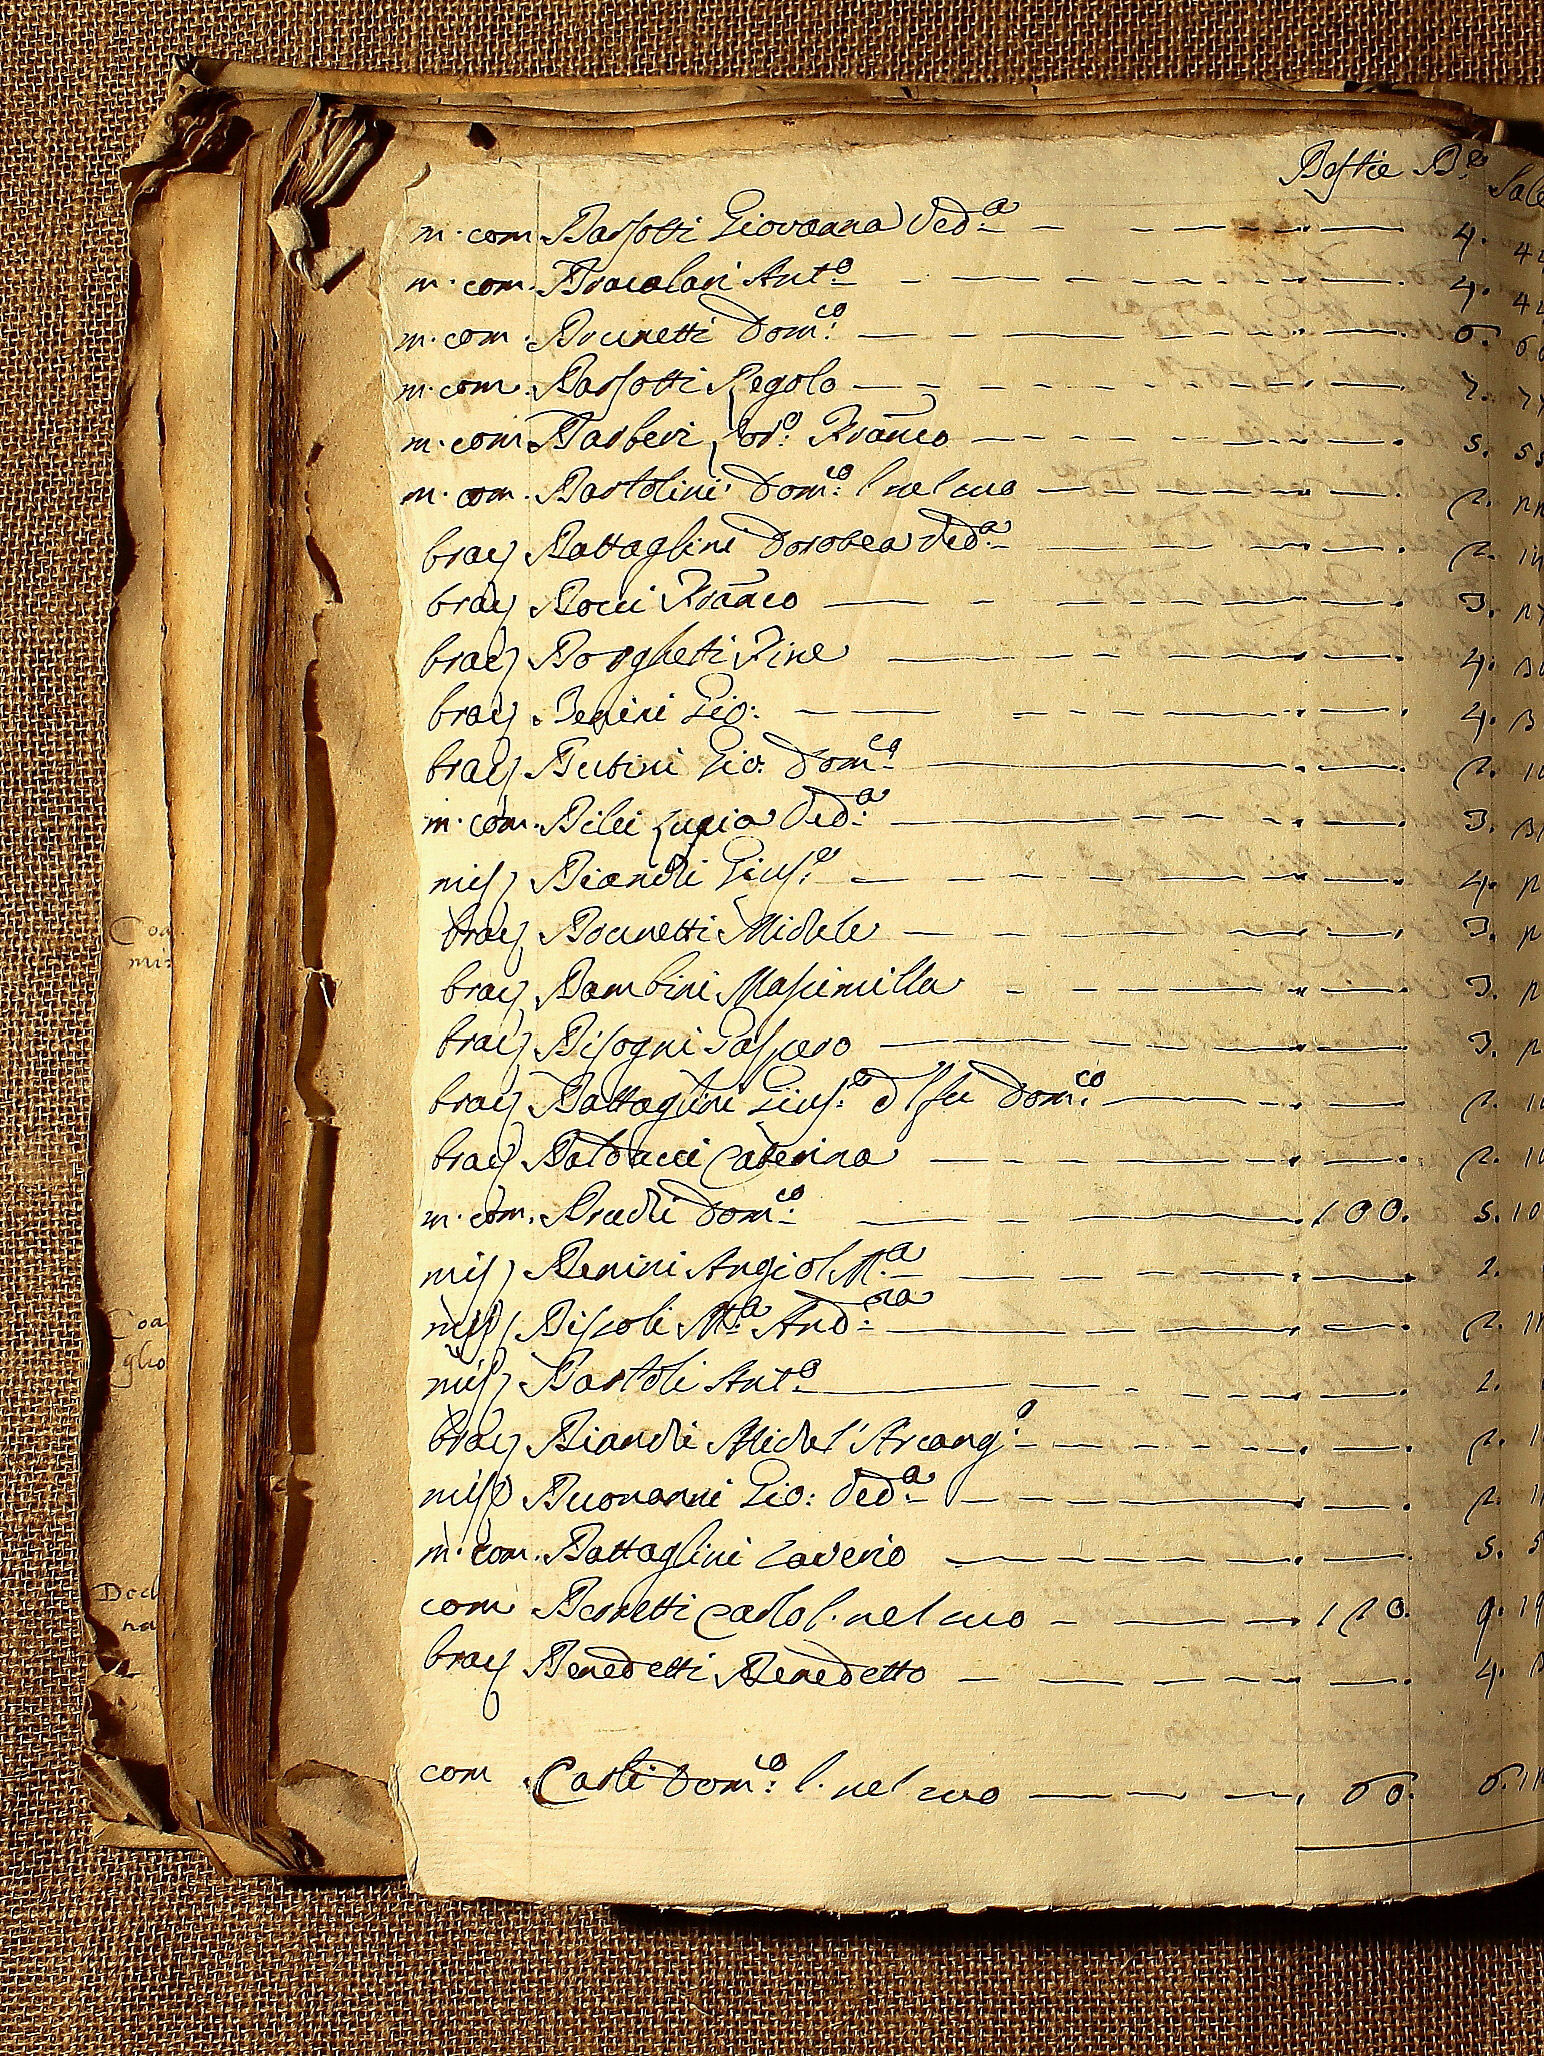 Bestie B.e Sale
m. com Barsotti Giovanna Ved.a 4. 4
m. com. Bracalari Ant.o 4. 4
m. com. Brunetti Dom.co 6. 6
m. com. Barsotti Regolo 7. 7
m. com Barberi Lor.o Franco 5. 5
m. com. Bartolini Dom.co l nel suo 2.
brac Battaglini Dorotea Ved.a 2.
brac Bocci Franco 3.
brac Borgheti Fine 4.
brac Benini Gio: 4.
brac Bubini Gio: Dom.co 2.
m. com. Bilei Lucia Ved.a 3.
mis Bianchi Gius.e 4.
brac Brunetti Michele 3.
brac Bambini Massimilla 3.
brac Bisogni 3.
brac Battaglini Gius.e d'l fu Dom.co 2.
brac Balducci Caterina 2.
m. com. Dom.co 100. 5. 10
mis Benini Angiol M.a 2.
mis Biscoli M.a And.rea 2.
mis Bartoli Ant.o 2.
brac Bianchi Michel'Arcang.o 2.
mis Buonanni Gio: Ved.a 2.
m. com. Battaglini Saverio 5. 5
com Bernetti Carlo l. nel suo 120. 9. 19
brac Benedetti Benedetto 4.
com Carli Dom.co l. nel suo 60. 6.
Coa
mi:
Coa
glio
Decl
na